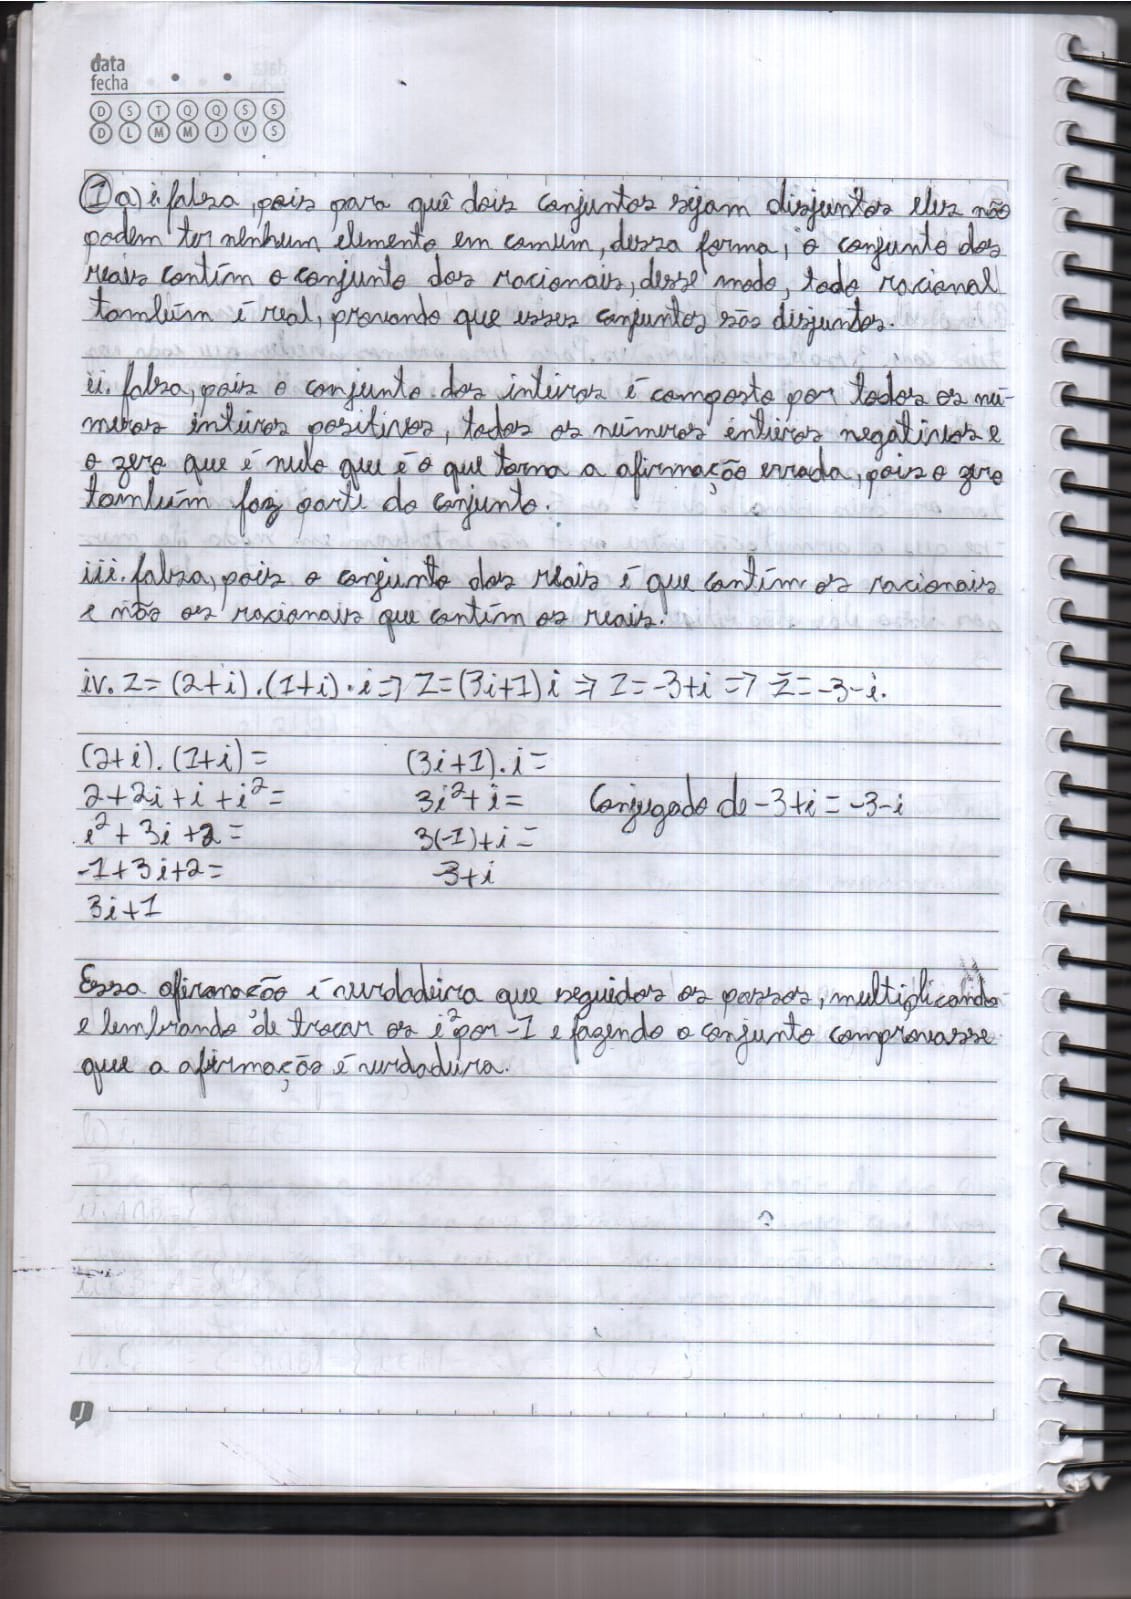 data
fecha
D S T Q Q S S
D L M M J V S
1 a) i. falsa, pois para quê dois conjuntos sejam disjuntos eles não
podem ter nenhum elemento em comum, dessa forma, o conjunto dos
reais contém o conjunto dos racionais, desse modo, todo racional
também é real, provando que esses conjuntos são disjuntos.
ii. falsa, pois o conjunto dos inteiros é composto por todos os nú-
meros inteiros positivos, todos os números entieros negativos e
o zero que é nulo que é o que torna a afirmação errada, pois o zero
também faz parte do conjunto.
iii. falsa, pois o conjunto dos reais é que contém os racionais
e não os racionais que contém os reais.
iv. Z = (2+i).(1+i).i => Z=(3i+1)i => Z=-3+i => Z̄=-3-i.
(2+i).(1+i)= (3i+1).i=
2+2i+i+i²= 3i²+i= Conjugado de -3+i=-3-i
i²+3i+2= 3(-1)+i=
-1+3i+2= -3+i
3i+1
Essa afirmação é verdadeira que seguidos os passos, multiplicando
e lembrando de trocar os i² por -1 e fazendo o conjunto comprovasse
que a afirmação é verdadeira.
J